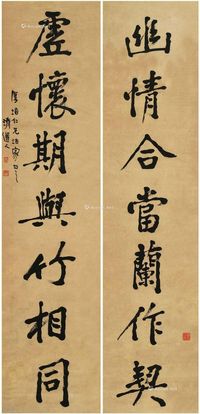 幽情合當蘭作契
虛懷期與竹相同
清道人